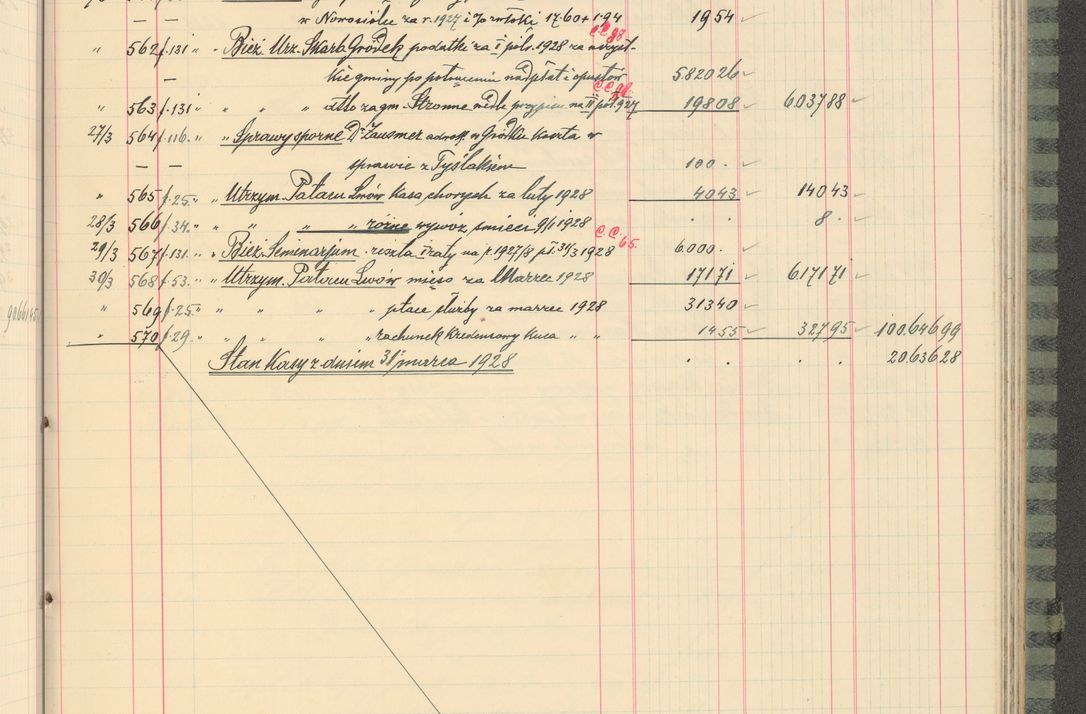 — — w Nowosiółce za r. 1927 i 70 17.60 + 1.94 19 54
" 562 f. 131 " " Bież. Urz. Skarb. Gródek podatki za I półr. 1928 za wszyst- C.C. 98
— kie gminy po potrąceniu nadpłat i opustów 5.820 26
" 563 f. 131 " " " " za gm. Stronne wedle na II pół. 927 C.C. 198 08 6037 88
27/3 564 f. 116. " " Sprawy sporne Dr. Zausmer adwok. w Gródku koszta w
— — sprawie z Tyślakiem 100 .
" 565 f. 25. " " Utrzym. Pałacu Lwów Kasa chorych za luty 1928 40 43 140 43
28/3 566 f. 34. " " " " różne wywóz śmieci 9/I 1928 . . 8 .
29/3 567 f. 131. " " Bież. Seminarjum reszta raty na r. 1927/8 pł. 31/3 1928 C.C. 65. 6.000 .
30/3 568 f. 53. " " Utrzym. Pałacu Lwów mięso za Marzec 1928 171 71 6171 71
" 569 f. 25. " " " " " płace służby za marzec 1928 313 40
" 570 f. 29. " " " " " rachunek Kredensowy Kuca " " 14 55 327 95 100.646 99
Stan Kasy z dniem 31 marca 1928 . . 20.636 28